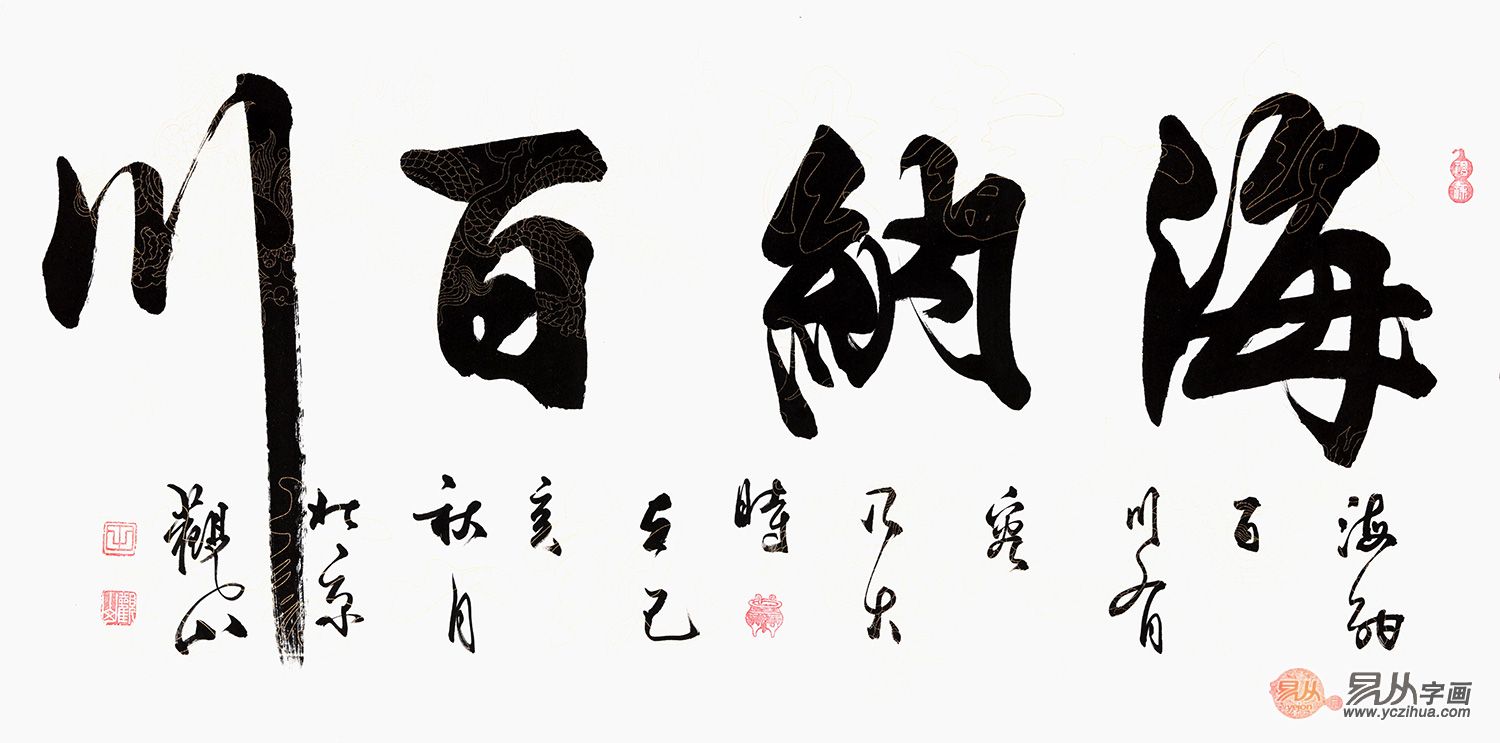 海納百川
海納
百
川有
容
乃大
時
在己
亥
秋月
北京
觀山
易从
易从字画
www.yczihua.com